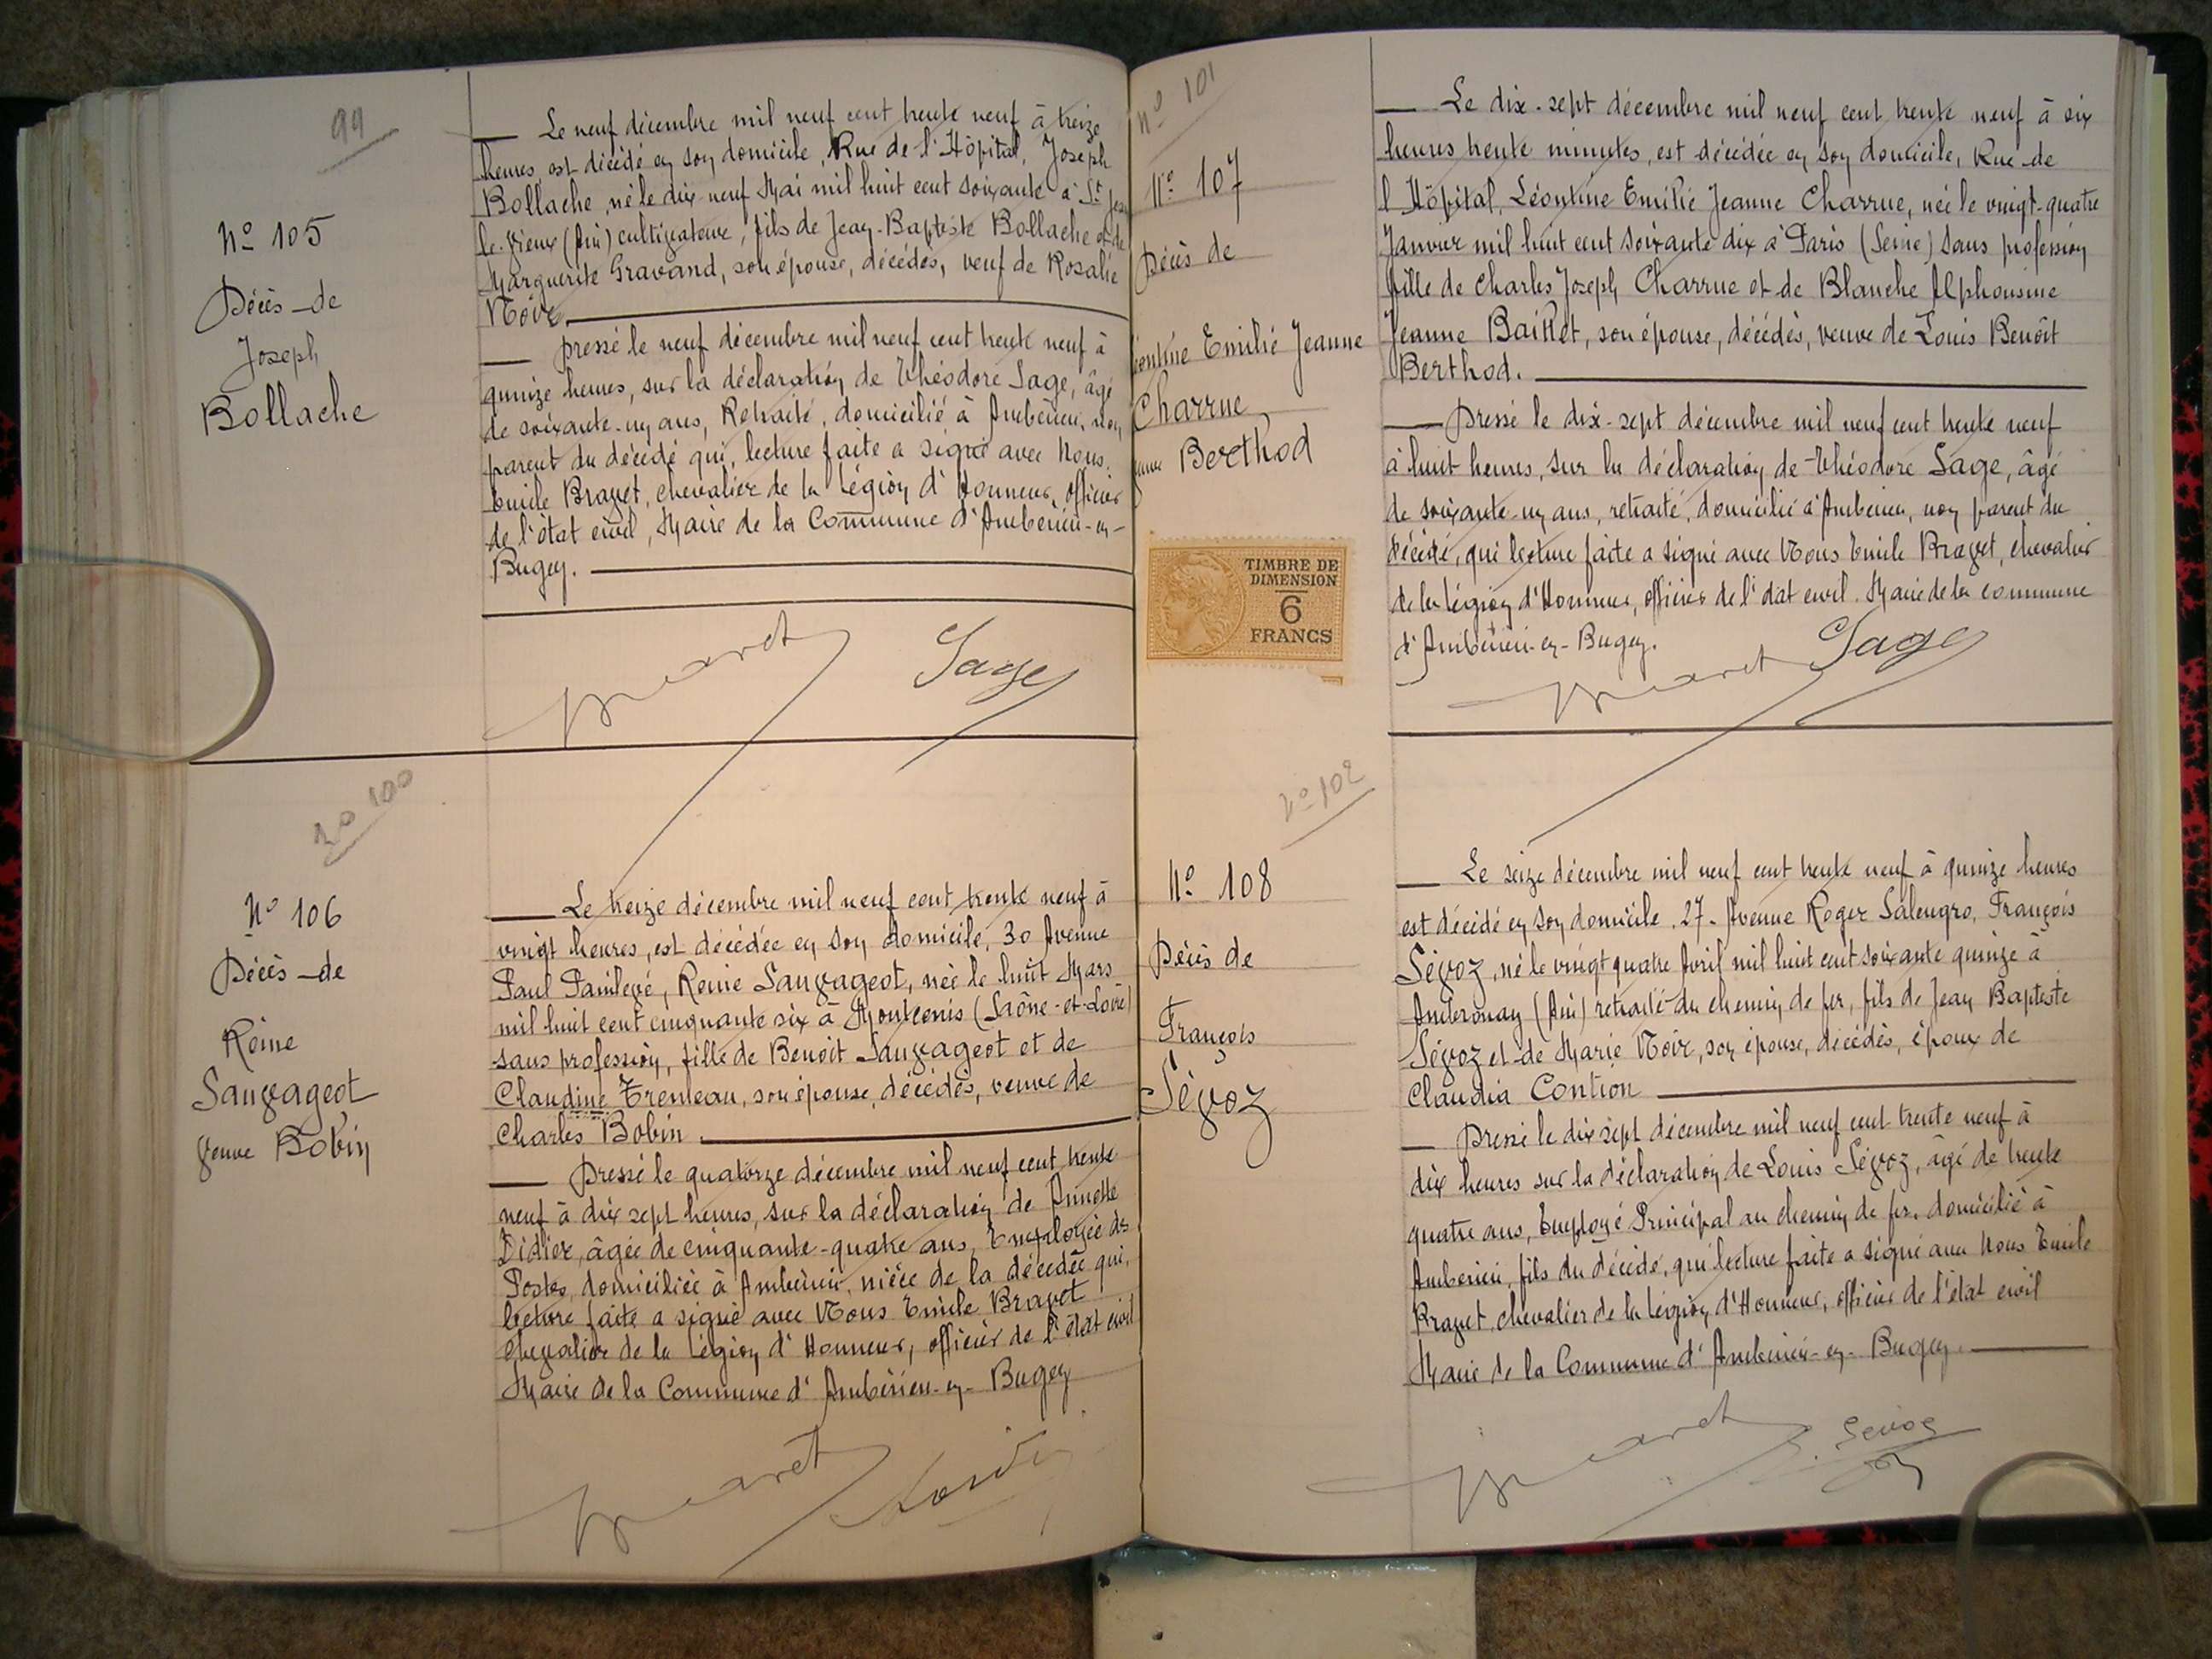 99
Nº 105
Décès de
Joseph
Bollache
Le neuf décembre mil neuf cent trente neuf à treize
heures est décédé en son domicile, Rue de l'Hôpital, Joseph
Bollache, né le dix-neuf Mai mil huit cent soixante à St Jean
le-Vieux (Ain) cultivateur, fils de Jean-Baptiste Bollache et de
Marguerite Gravand, son épouse, décédés, veuf de Rosalie
Noir.
Dressé le neuf décembre mil neuf cent trente neuf à
quinze heures, sur la déclaration de Théodore Sage, âgé
de soixante-un ans, Retraité, domicilié à Ambérieu, non
parent du décédé qui, lecture faite a signé avec Nous
Emile Bravet, chevalier de la Légion d'Honneur, officier
de l'état civil, Maire de la Commune d'Ambérieu-en-
Bugey.
Sage
Nº 100
Nº 106
Décès de
Reine
Sauvageot
Veuve Bobin
Le treize décembre mil neuf cent trente neuf à
vingt heures, est décédée en son domicile, 30 Avenue
Paul Painlevé, Reine Sauvageot, née le huit Mars
mil huit cent cinquante six à Montcenis (Saône-et-Loire)
sans profession, fille de Benoit Sauvageot et de
Claudine Tremeau, son épouse, décédés, veuve de
Charles Bobin
Dressé le quatorze décembre mil neuf cent trente
neuf à dix sept heures, sur la déclaration de Annette
Didier, âgée de cinquante-quatre ans, Employée des
Postes, domiciliée à Ambérieu, nièce de la décédée qui,
lecture faite a signé avec Nous Emile Bravet
chevalier de la Légion d'Honneur, officier de l'état civil
Maire de la Commune d'Ambérieu-en-Bugey
Nº 101
Nº 107
Décès de
éontine Emilie Jeanne
Charrue
veuve Berthod
TIMBRE DE
DIMENSION
6
FRANCS
Le dix-sept décembre mil neuf cent trente neuf à six
heures trente minutes, est décédée en son domicile, Rue de
l'Hôpital, Léontine Emilie Jeanne Charrue, née le vingt-quatre
Janvier mil huit cent soixante dix à Paris (Seine) sans profession
fille de Charles Joseph Charrue et de Blanche Alphonsine
Jeanne Baillet, son épouse, décédés, veuve de Louis Benoît
Berthod.
Dressé le dix-sept décembre mil neuf cent trente neuf
à huit heures, sur la déclaration de Théodore Sage, âgé
de soixante-un ans, retraité, domicilié à Ambérieu, non parent du
décédé, qui lecture faite a signé avec Nous Emile Bravet, chevalier
de la Légion d'Honneur, officier de l'état civil. Maire de la commune
d'Ambérieu-en-Bugey.
Sage
Nº 102
Nº 108
Décès de
François
Sévoz
Le seize décembre mil neuf cent trente neuf à quinze heures
est décédé en son domicile, 27 - Avenue Roger Salengro, François
Sévoz, né le vingt quatre Avril mil huit cent soixante quinze à
Ambronay (Ain) retraité du chemin de fer, fils de Jean Baptiste
Sévoz et de Marie Noir, son épouse, décédés, époux de
Claudia Contion
Dressé le dix sept décembre mil neuf cent trente neuf à
dix heures sur la déclaration de Louis Sévoz, âgé de trente
quatre ans, Employé Principal au chemin de fer, domicilié à
Ambérieu, fils du décédé, qui lecture faite a signé avec Nous Emile
Bravet chevalier de la Légion d'Honneur, officier de l'état civil
Maire de la Commune d'Ambérieu-en-Bugey.
Sevoz